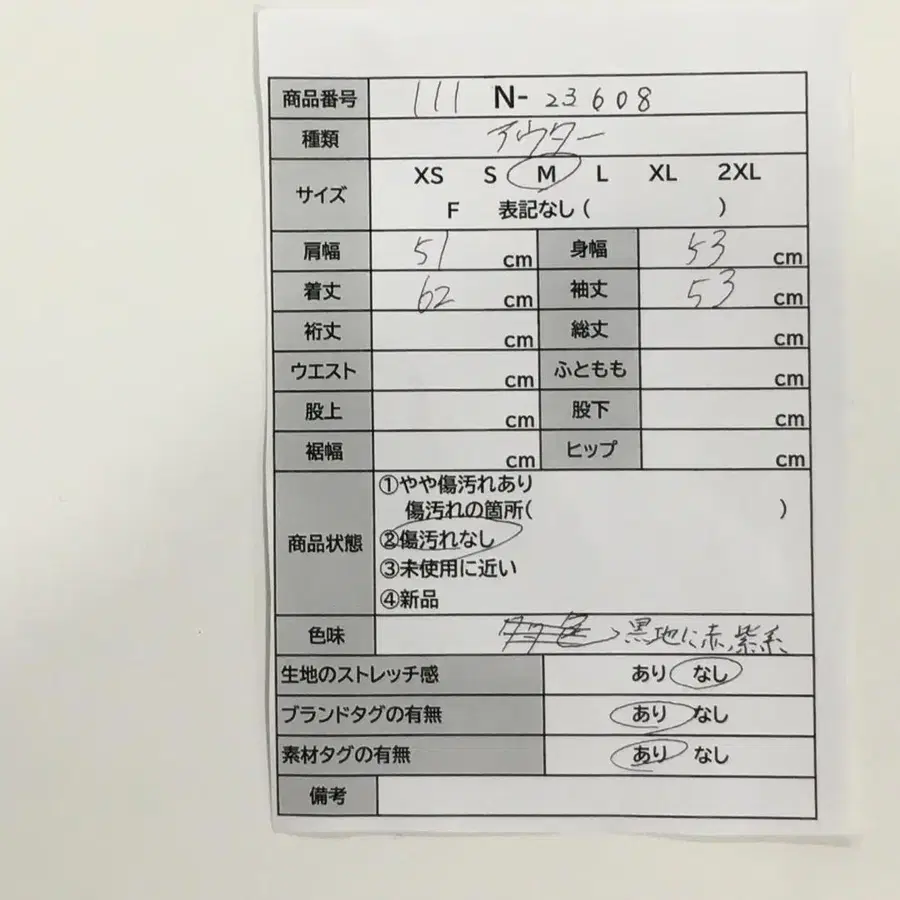 商品番号 111 N- 23608
種類 アウター
サイズ XS S M L XL 2XL
F 表記なし ( )
肩幅 51 cm 身幅 53 cm
着丈 62 cm 袖丈 53 cm
裄丈 cm 総丈 cm
ウエスト cm ふともも cm
股上 cm 股下 cm
裾幅 cm ヒップ cm
商品状態 ①やや傷汚れあり
傷汚れの箇所( )
②傷汚れなし
③未使用に近い
④新品
色味 黒地に赤,紫系
生地のストレッチ感 あり なし
ブランドタグの有無 あり なし
素材タグの有無 あり なし
備考